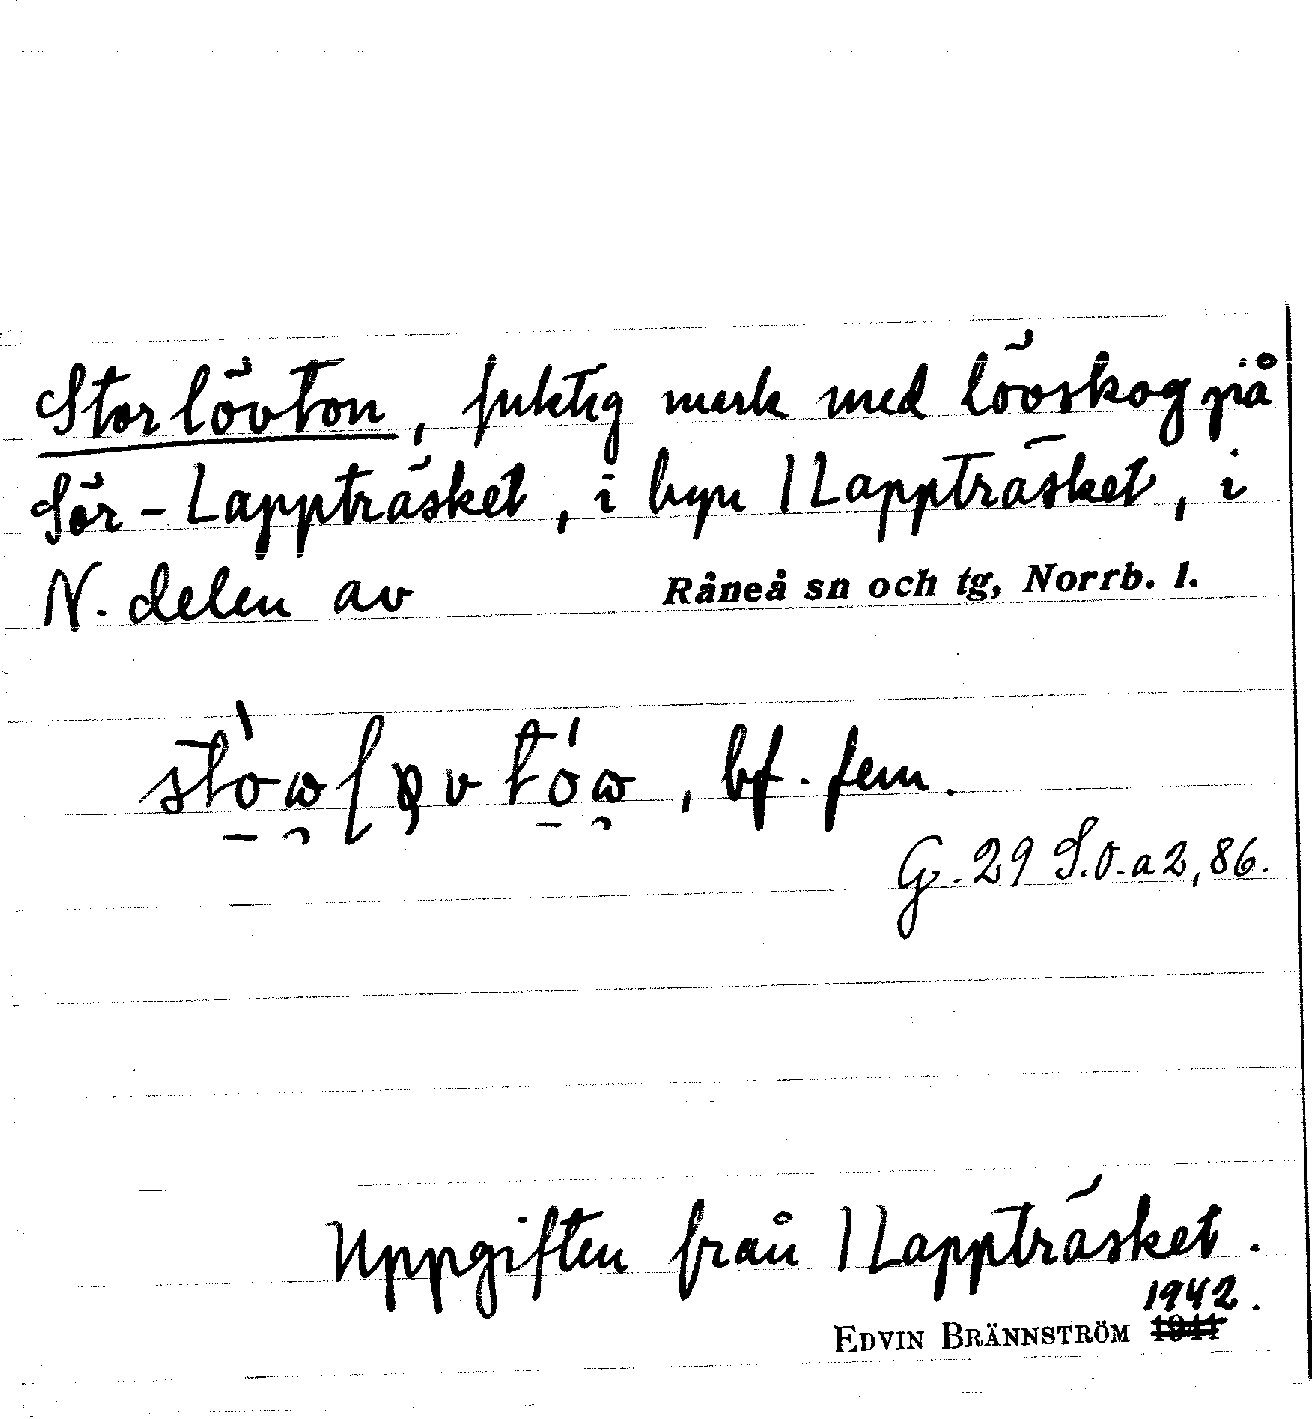 Storlövton, fuktig mark med lövskog på
Sör-Lappträsket, i byn 1 Lappträsket, i
N. delen av Råneå sn och tg, Norrb. l.
, bf. fem.
G. 29 S.O. a 2, 86.
Uppgiften från 1 Lappträsket.
1942.
EDVIN BRÄNNSTRÖM 1941